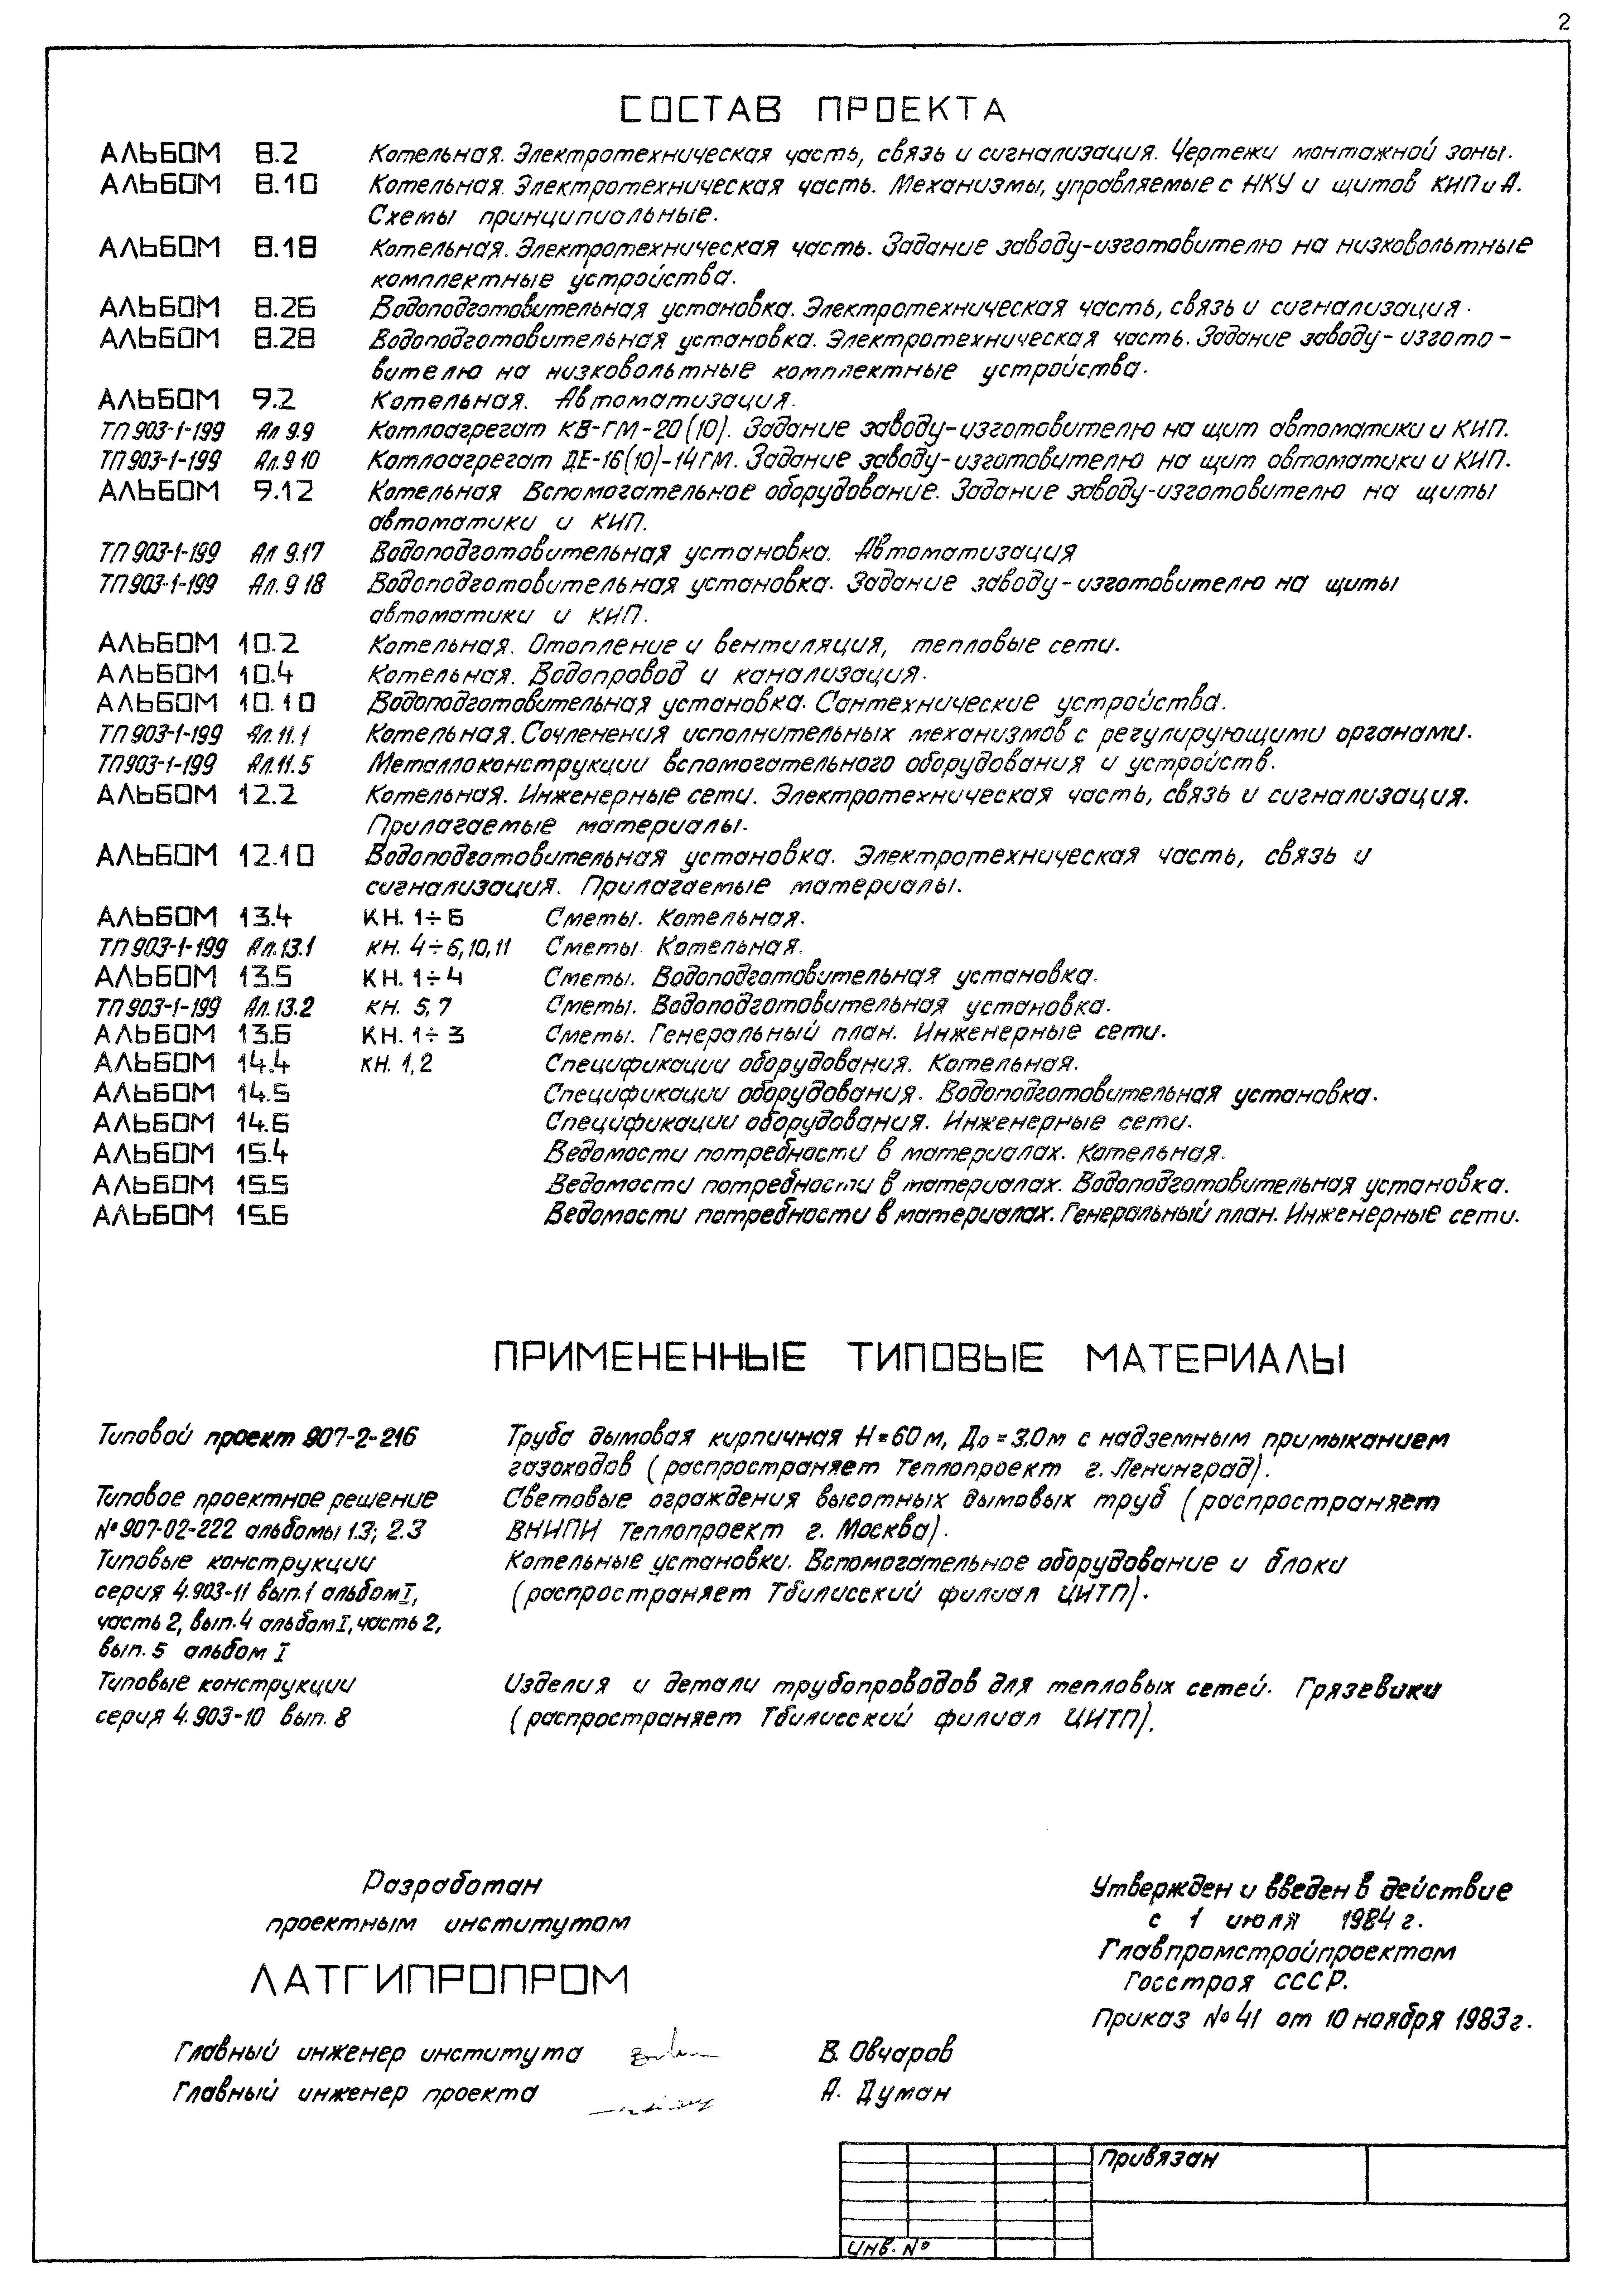 2
СОСТАВ ПРОЕКТА
АЛЬБОМ 8.2 Котельная. Электротехническая часть, связь и сигнализация. Чертежи монтажной зоны.
АЛЬБОМ 8.10 Котельная. Электротехническая часть. Механизмы, управляемые с НКУ и щитов КИПиА.
Схемы принципиальные.
АЛЬБОМ 8.18 Котельная. Электротехническая часть. Задание заводу-изготовителю на низковольтные
комплектные устройства.
АЛЬБОМ 8.26 Водоподготовительная установка. Электротехническая часть, связь и сигнализация.
АЛЬБОМ 8.28 Водоподготовительная установка. Электротехническая часть. Задание заводу-изгото-
вителю на низковольтные комплектные устройства.
АЛЬБОМ 9.2 Котельная. Автоматизация.
ТП 903-1-199 Ал 9.9 Котлоагрегат КВ-ГМ-20(10). Задание заводу-изготовителю на щит автоматики и КИП.
ТП 903-1-199 Ал. 9 10 Котлоагрегат ДЕ-16(10)-14ГМ. Задание заводу-изготовителю на щит автоматики и КИП.
АЛЬБОМ 9.12 Котельная Вспомогательное оборудование. Задание заводу-изготовителю на щиты
автоматики и КИП.
ТП 903-1-199 Ал 9.17 Водоподготовительная установка. Автоматизация
ТП 903-1-199 Ал. 9 18 Водоподготовительная установка. Задание заводу-изготовителю на щиты
автоматики и КИП.
АЛЬБОМ 10.2 Котельная. Отопление и вентиляция, тепловые сети.
АЛЬБОМ 10.4 Котельная. Водопровод и канализация.
АЛЬБОМ 10.10 Водоподготовительная установка. Сантехнические устройства.
ТП 903-1-199 Ал. 11.1 Котельная. Сочленения исполнительных механизмов с регулирующими органами.
ТП 903-1-199 Ал. 11.5 Металлоконструкции вспомогательного оборудования и устройств.
АЛЬБОМ 12.2 Котельная. Инженерные сети. Электротехническая часть, связь и сигнализация.
Прилагаемые материалы.
АЛЬБОМ 12.10 Водоподготовительная установка. Электротехническая часть, связь и
сигнализация. Прилагаемые материалы.
АЛЬБОМ 13.4 КН. 1÷6 Сметы. Котельная.
ТП 903-1-199 Ал. 13.1 КН. 4÷6, 10, 11 Сметы. Котельная.
АЛЬБОМ 13.5 КН. 1÷4 Сметы. Водоподготовительная установка.
ТП 903-1-199 Ал. 13.2 КН. 5, 7 Сметы. Водоподготовительная установка.
АЛЬБОМ 13.6 КН. 1÷3 Сметы. Генеральный план. Инженерные сети.
АЛЬБОМ 14.4 КН. 1, 2 Спецификации оборудования. Котельная.
АЛЬБОМ 14.5 Спецификации оборудования. Водоподготовительная установка.
АЛЬБОМ 14.6 Спецификации оборудования. Инженерные сети.
АЛЬБОМ 15.4 Ведомости потребности в материалах. Котельная.
АЛЬБОМ 15.5 Ведомости потребности в материалах. Водоподготовительная установка.
АЛЬБОМ 15.6 Ведомости потребности в материалах. Генеральный план. Инженерные сети.
ПРИМЕНЕННЫЕ ТИПОВЫЕ МАТЕРИАЛЫ
Типовой проект 907-2-216 Труба дымовая кирпичная Н=60м, До=3.0м с надземным примыканием
газоходов (распространяет Теплопроект г. Ленинград).
Типовое проектное решение Световые ограждения высотных дымовых труб (распространяет
№ 907-02-222 альбомы 1.3; 2.3 ВНИПИ Теплопроект г. Москва).
Типовые конструкции Котельные установки. Вспомогательное оборудование и блоки
серия 4.903-11 вып.1 альбом I, (распространяет Тбилисский филиал ЦИТП).
часть 2, вып.4 альбом I, часть 2,
вып. 5 альбом I
Типовые конструкции Изделия и детали трубопроводов для тепловых сетей. Грязевики
серия 4.903-10 вып. 8 (распространяет Тбилисский филиал ЦИТП).
Разработан
проектным институтом
ЛАТГИПРОПРОМ
Утвержден и введен в действие
с 1 июля 1984 г.
Главпромстройпроектом
Госстроя СССР.
Приказ № 41 от 10 ноября 1983 г.
Главный инженер института В. Овчаров
Главный инженер проекта А. Думан
Привязан
Инв. №